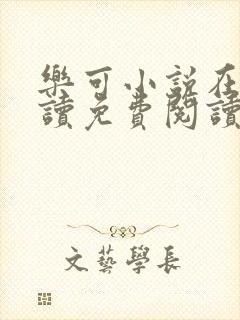 樂可小說在
讀免費閱讀
文藝學長